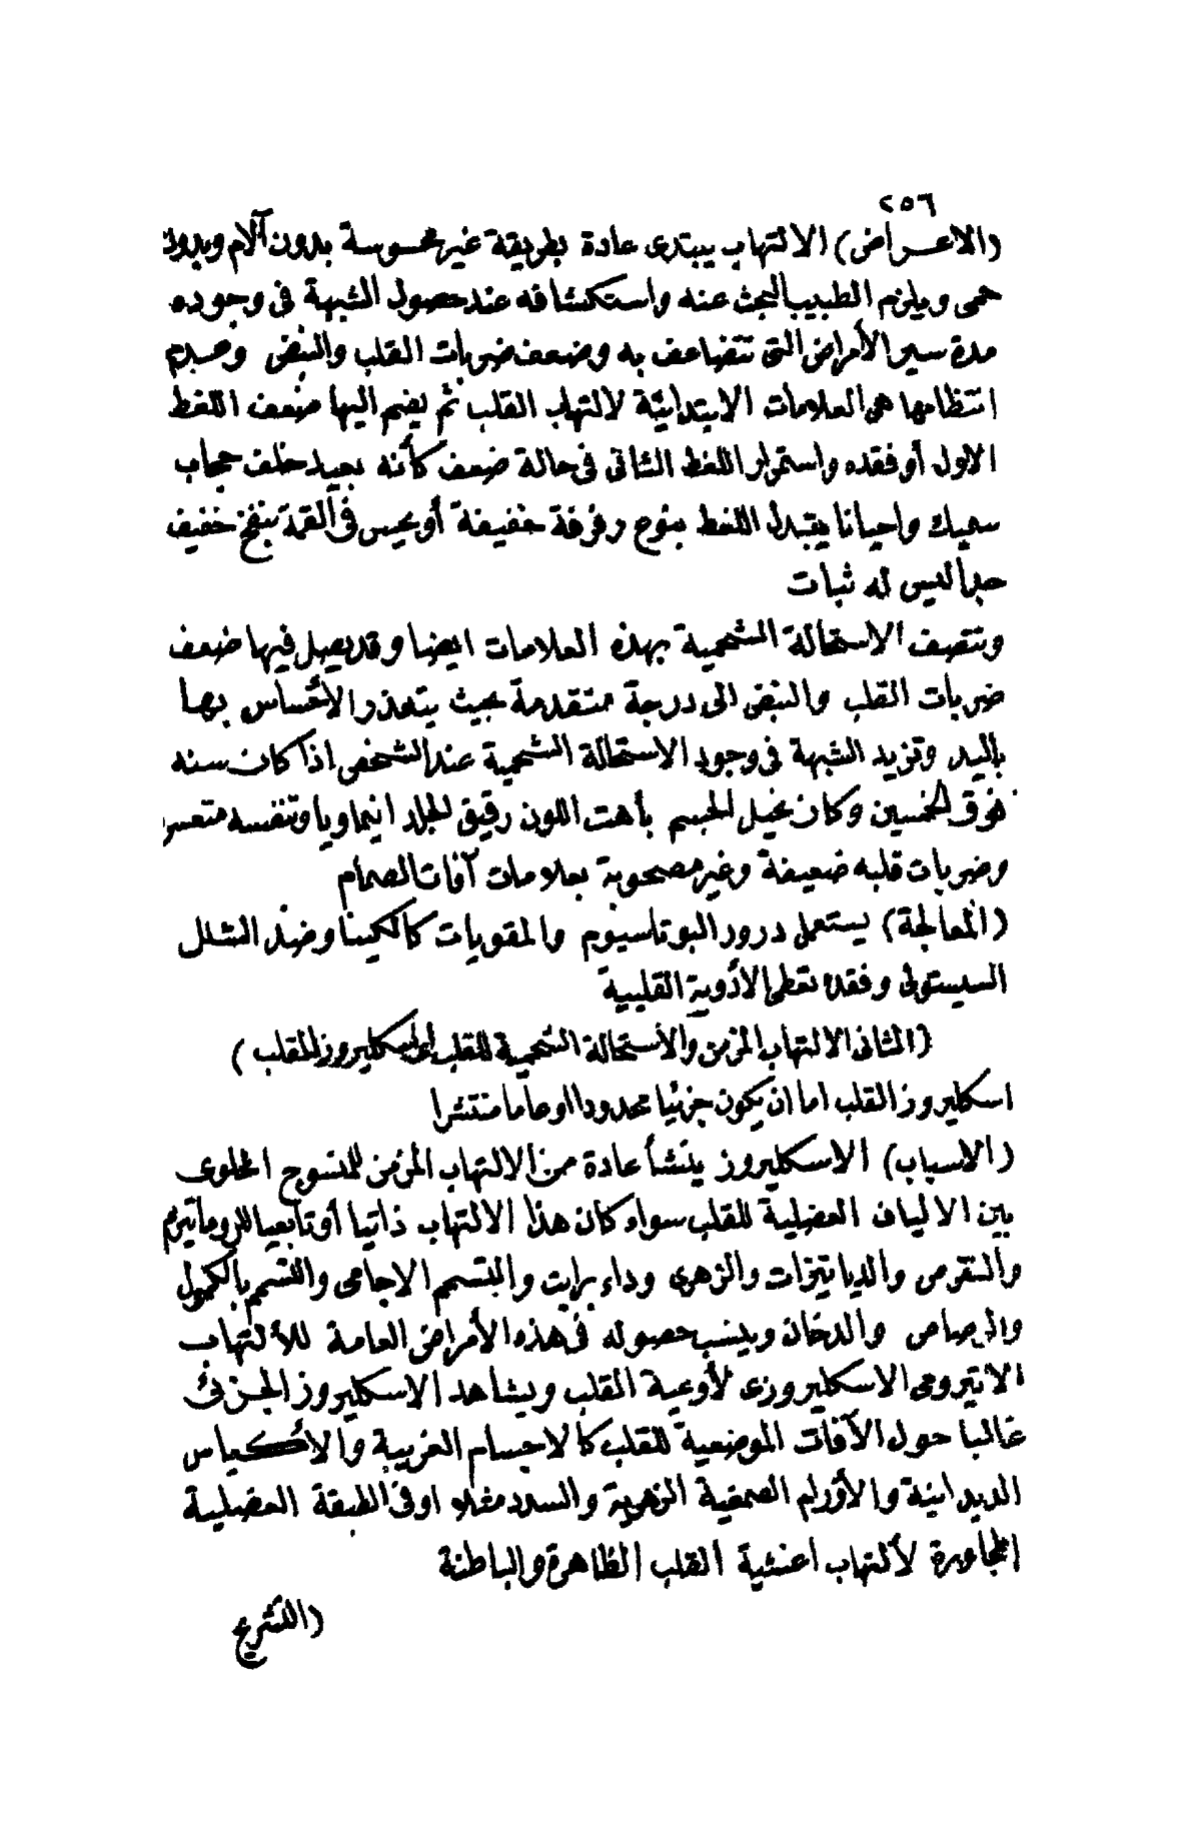 ٢٥٦
(الاعراض) الالتهاب يبتدى عادة بطريقة غير محسوسة بدون آلام وبدون
حمى ويلزم الطبيب البحث عنه واستكشافه عند حصول الشبهة فى وجوده
مدة سير الأمراض التى تتضاعف به وضعف ضربات القلب والنبض وعدم
انتظامها هى العلامات الابتدائية لالتهاب القلب ثم يضم اليها ضعف اللغط
الاول أو فقده واستمرار اللغط الثانى فى حالة ضعف كأنه بعيد خلف حجاب
سميك واحيانا يتبدل اللغط بنوع رفرفة خفيفة أو يحس فى القمة بنفخ خفيف
جدا ليس له ثبات
وتتصف الاستحالة الشحمية بهذه العلامات ايضا وقد يصل فيها ضعف
ضربات القلب والنبض الى درجة متقدمة بحيث يتعذر الأحساس بها
باليد وتزيد الشبهة فى وجود الاستحالة الشحمية عند الشخص اذا كان سنه
فوق الخمسين وكان نحيل الجسم بأهت اللون رقيق الجلد انيماويا وتنفسه متعسر
وضربات قلبه ضعيفة وغير مصحوبة بعلامات آفات الصمام
(المعالجة) يستعمل درور البوتاسيوم والمقويات كالكينا وضد الشلل
السيستولى وفقده تعطى الأدوية القلبية
(الثانى الالتهاب المزمن والأستحالة الشحمية للقلب أى اسكليروز القلب)
اسكليروز القلب اما ان يكون جزئيا محدودا او عاما منتشرا
(الاسباب) الاسكليروز ينشأ عادة من الالتهاب المزمن للمنسوج الخلوى
بين الالياف العضلية للقلب سواء كان هذا الالتهاب ذاتيا أو تابعيا للروماتيزم
والنقرس والديابتيزات والزهرى وداء برايت والتسمم الاجامى والتسمم بالكحول
والرصاص والدخان وينسب حصوله فى هذه الأمراض العامة للألتهاب
الاتيرومى الاسكليروزى لأوعية القلب ويشاهد الاسكليروز الجزئى
غالبا حول الآفات الموضعية للقلب كالاجسام الغريبة والأكياس
الديدانية والأورام الصمغية الزهرية والسدد مثلا او فى الطبقة العضلية
المجاورة لألتهاب اغشية القلب الظاهرة والباطنة
(التشريح